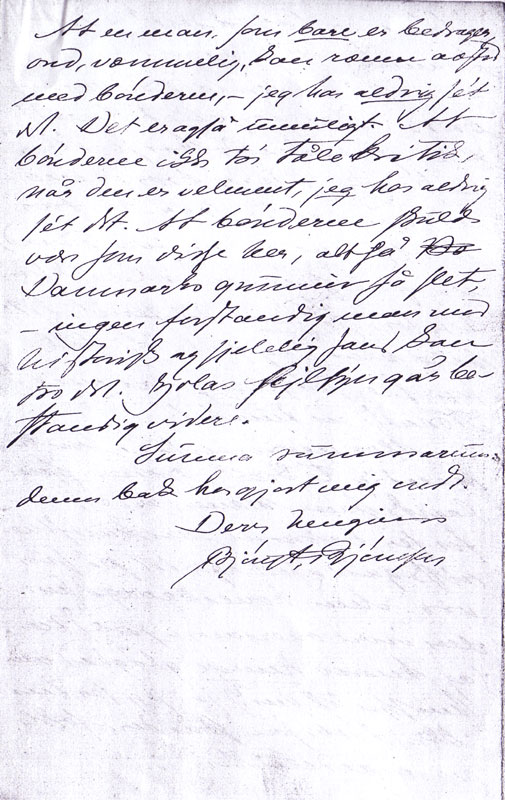 At en man, som bare er bedrager,
ond, vemmelig, kan
med bønderne, – jeg har aldrig sét
det. Det er også umuligt. At
bønderne ikke tør tåle kritik,
når den er velment, jeg har aldrig
sét det. At bønderne skulde
være som disse her, altså
Danmarks grunnmur så slet,
– ingen forstandig man med
historisk og sjelelig sans kan
tro det. Zolas fejlsyn går be-
standig videre.
Summa summarum:
denne bok har gjort mig ondt.
Deres hengivne
Bjørnst. Bjørnson